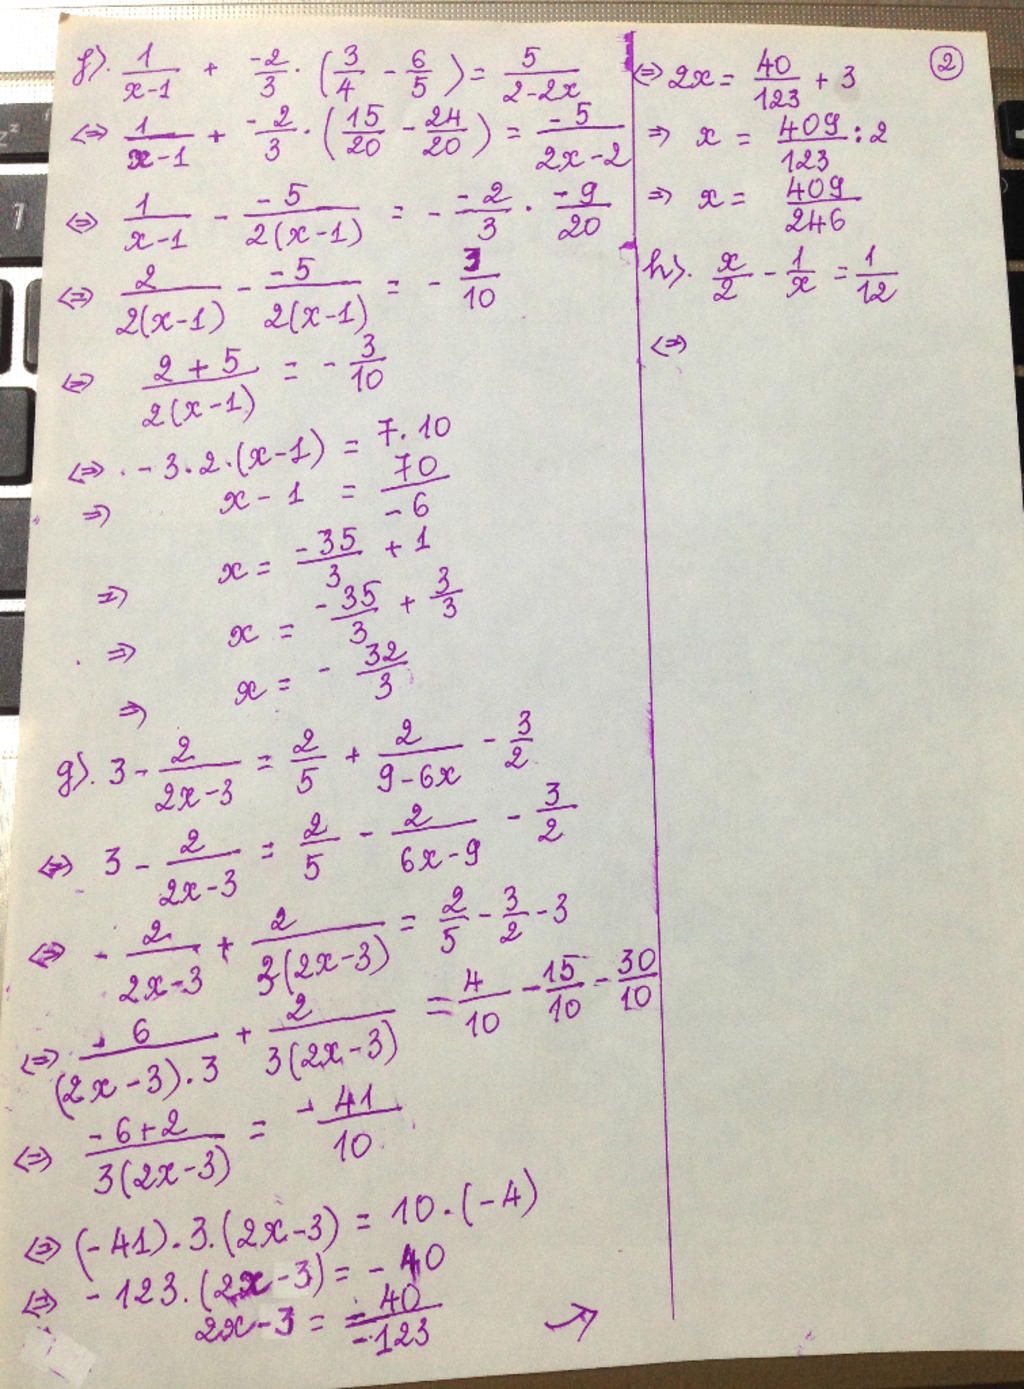 f). 1/(x-1) + -2/3 · (3/4 - 6/5) = 5/(2-2x)
<=> 1/(x-1) + -2/3 · (15/20 - 24/20) = -5/(2x-2)
<=> 1/(x-1) - -5/(2(x-1)) = - -2/3 · -9/20
<=> 2/(2(x-1)) - -5/(2(x-1)) = - 3/10
<=> (2+5)/(2(x-1)) = - 3/10
<=> · -3·2·(x-1) = 7·10
=> x-1 = 70/-6
=> x = -35/3 + 1
=> x = -35/3 + 3/3
=> x = - 32/3
g). 3 - 2/(2x-3) = 2/5 + 2/(9-6x) - 3/2
<=> 3 - 2/(2x-3) = 2/5 - 2/(6x-9) - 3/2
<=> - 2/(2x-3) + 2/(3(2x-3)) = 2/5 - 3/2 - 3
<=> -6/((2x-3)·3) + 2/(3(2x-3)) = 4/10 - 15/10 - 30/10
<=> (-6+2)/(3(2x-3)) = - 41/10
<=> (-41)·3·(2x-3) = 10·(-4)
<=> -123·(2x-3) = -40
2x-3 = -40/-123 →
2
<=> 2x = 40/123 + 3
=> x = 409/123 : 2
=> x = 409/246
h). x/2 - 1/x = 1/12
<=>